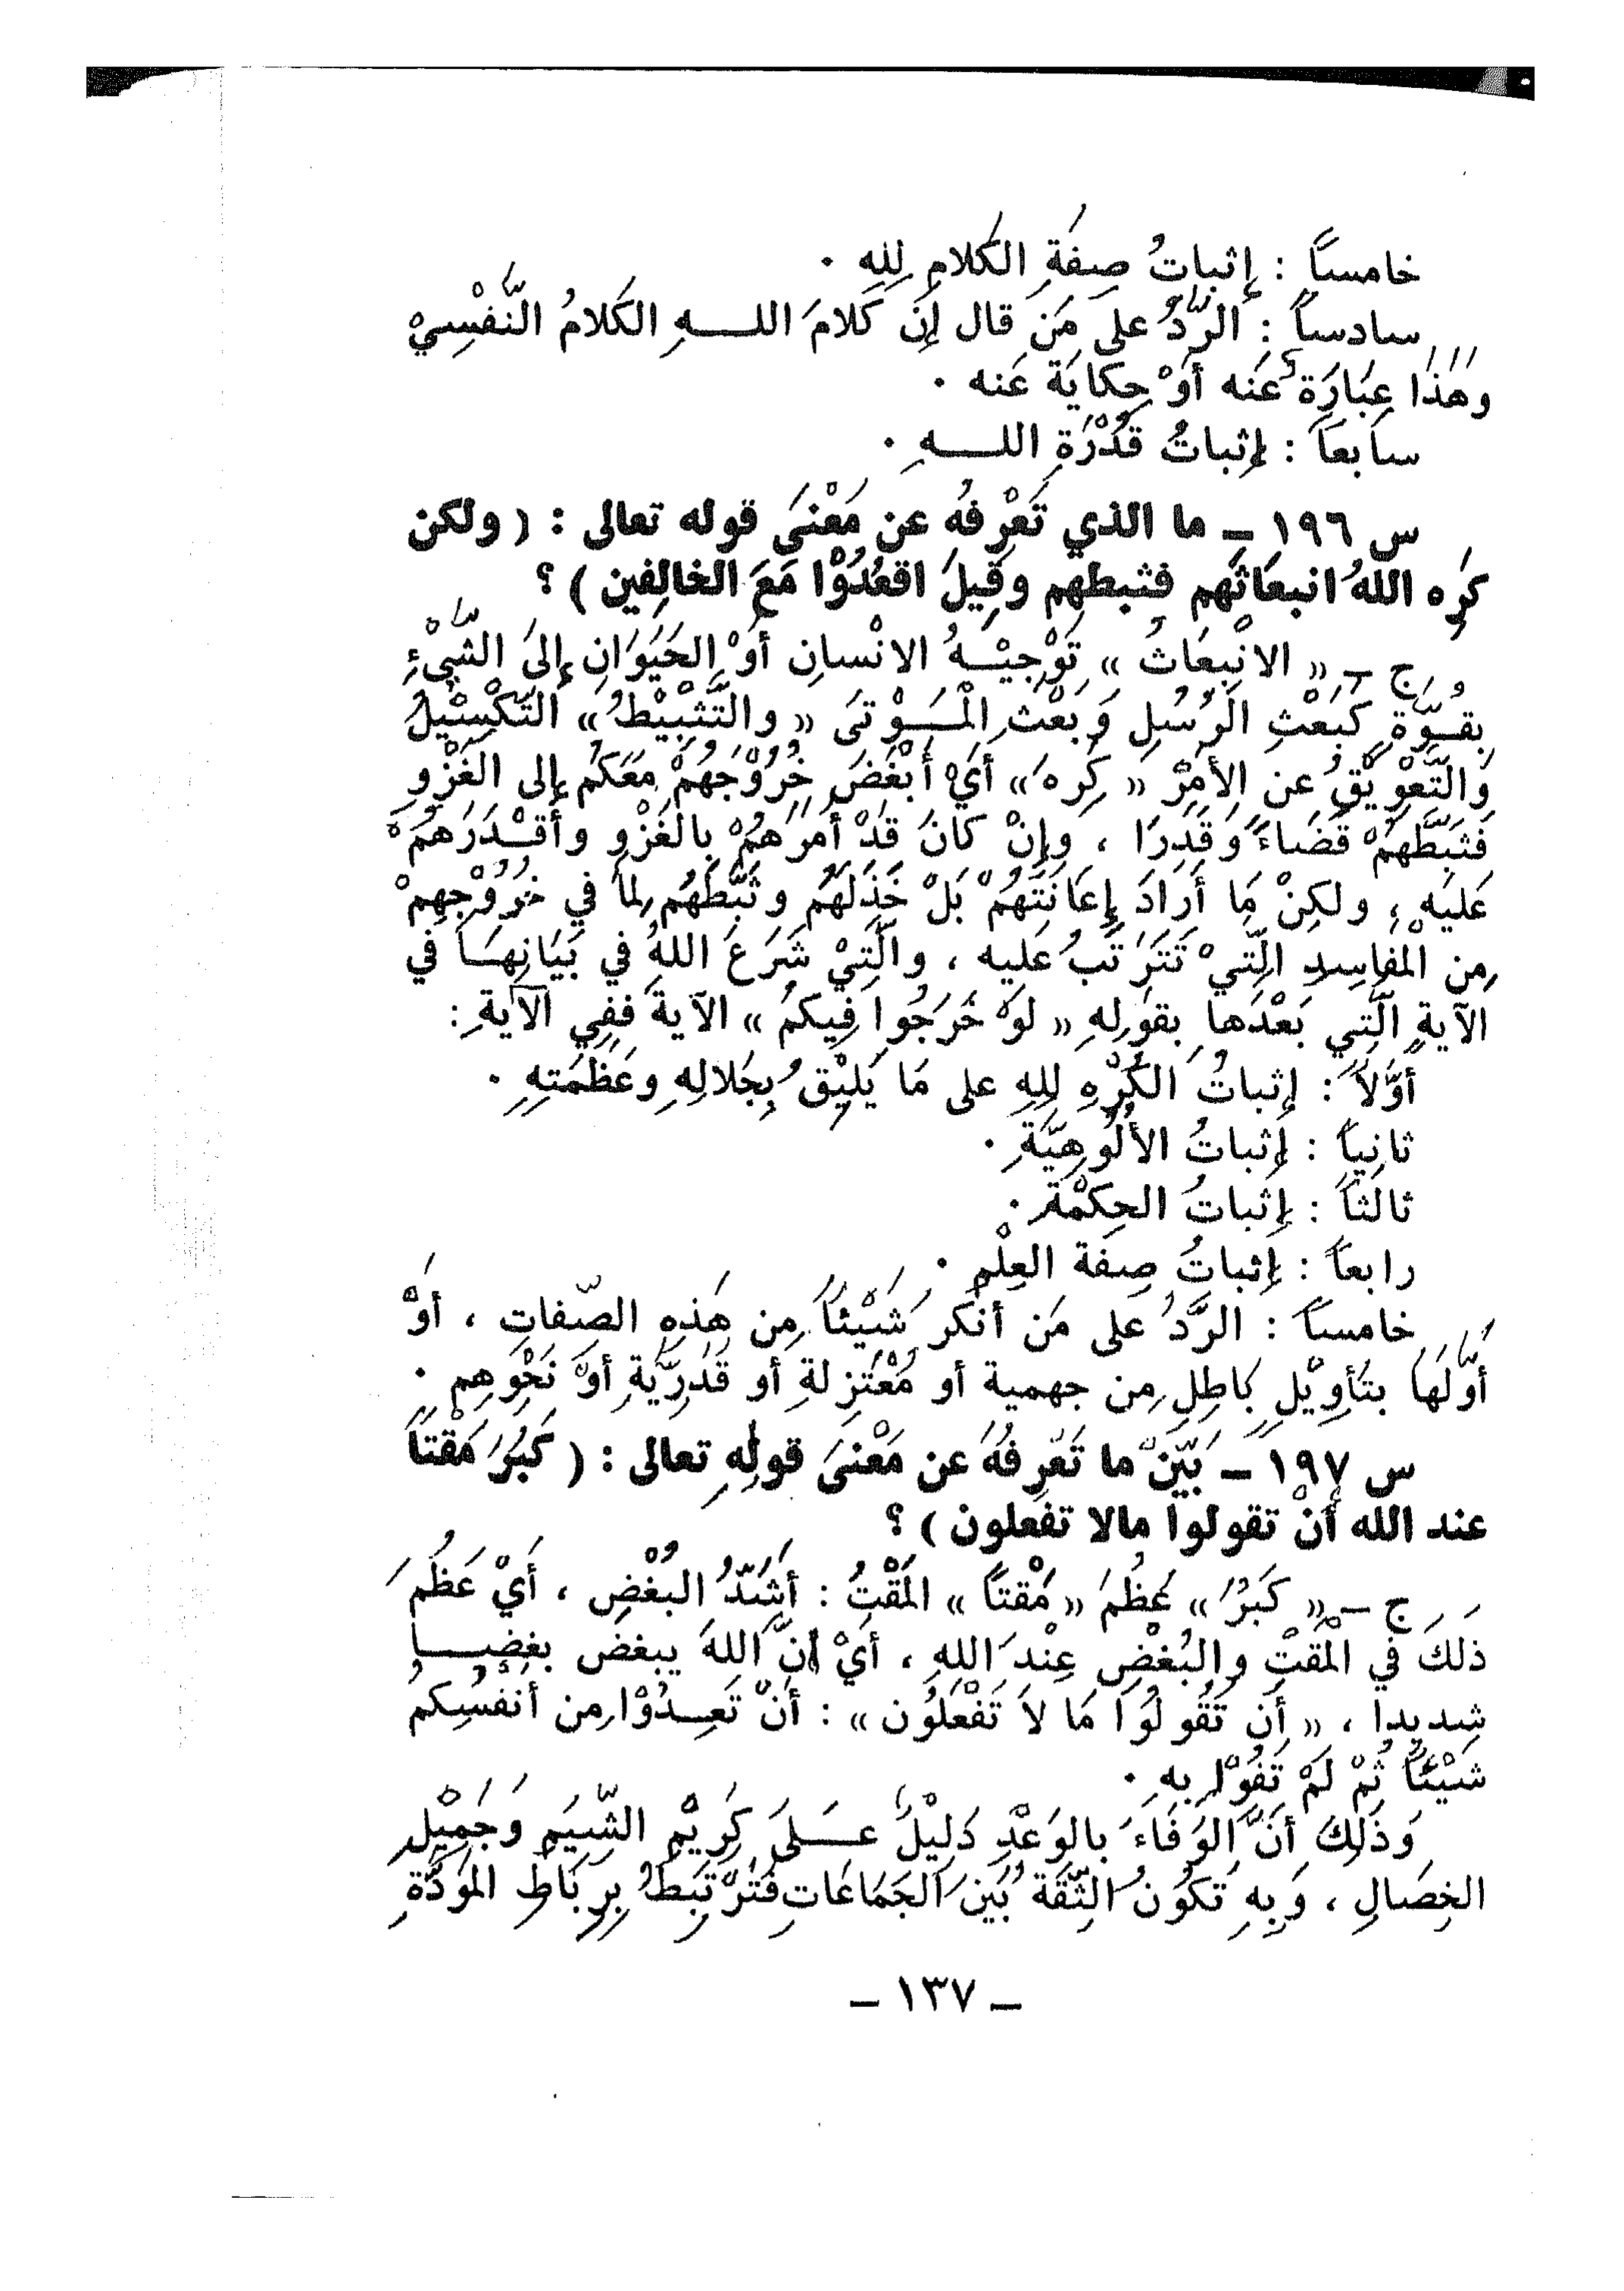 خامساً : إثباتُ صِفَةِ الكَلامِ لِلهِ .
سادساً : الرَّدُّ على مَن قال إنَّ كَلامَ اللـــهِ الكَلامُ النَّفْسِيْ
وهَذا عِبَارَة عَنه أوْ حِكايَة عَنه .
سابعاً : إثباتُ قُدْرَةِ اللـــهِ .
س ١٩٦ ــ ما الذي تَعْرِفُه عن مَعْنَى قوله تعالى : ( ولكن
كَرِه اللهُ انبعَاثَهم فثبطهم وقِيلَ اقعُدُوْا مَعَ الخالِفين ) ؟
ج ــ « الانْبِعَاثُ » تَوْجِيْــهُ الانْسانِ أوْ الحَيَوَانِ إلىَ الشَّيْءِ
بِقُــوَّةٍ كَبَعْثِ الرُسُلِ وَبَعْثِ الْمَــوْتىَ « والتَّثبِيْطُ » التَّكْسِيْلُ
وَالتَّعْوِيْقُ عن الأمْرِ « كَرِهَ » أيْ أبْغَضَ خُرُوْجَهُمْ مَعَكم إلى الغَزْوِ
فَثَبَّطَهُمْ قَضَاءً وَقَدَرًا ، وإنْ كانَ قَدْ أمَرَهُمْ بِالغَزْوِ وأقْــدَرَهُمْ
عَليَه ، ولكِنْ مَا أرَادَ إعَانَتَهُمْ بَلْ خَذَلَهُمْ وثَبَّطَهُم لِماَ في خُرُوْجِهِمْ
مِن الْمفَاسِدِ الَّتيْ تَتَرَتَّبُ عَليه ، والَّتيْ شَرَعَ اللهُ في بَيَانِهَــا في
الآيةِ الَّتِي بَعْدَها بقَولِهِ « لوْ خَرَجُوا فِيكمُ » الآيةَ فَفِي الآيةِ :
أوَّلاً : إثباتُ الكُرْهِ لِلهِ على مَا يَلِيْقُ بِجَلالِهِ وعَظَمَتِهِ .
ثانِياً : إثباتُ الألُوهِيَّةِ .
ثالثاً : إثباتُ الحِكمْةِ .
رابعاً : إثباتُ صِفَة العِلْمِ .
خامساً : الرَّدُّ على مَن أنْكَر شَيْئاً مِن هَذِهِ الصِّفاتِ ، أوْ
أوَّلَهَا بتَأوِيْلٍ بَاطِلٍ مِن جهمية أو مُعْتَزِلةِ أو قَدَرِيَّةِ أوْ نَحْوِهِم .
س ١٩٧ ــ بَيّنْ ما تَعْرِفُهُ عن مَعْنىَ قولِهِ تعالى : ( كَبُرَ مَقْتاً
عند الله أنْ تقولوا مالا تفعلون ) ؟
ج ــ « كَبَرُ » عَظُمَ « مَقْتاً » المَقْتُ : أشَدُّ البُغْضِ ، أيْ عَظُمَ
ذَلكَ في الْمَقتْ والبُغْضِ عِنْدَ اللهِ ، أيْ انَّ اللهَ يبغض بغضــا
شديدا ، « أن تَقُولُوَا مَا لاَ تَفْعَلُون » : أنْ تَعِــدُوْا مِن أنفُسِكمُ
شَيْئاً ثُمْ لَمْ تَفُوْا بِهِ .
وَذَلِكَ أنَّ الوَفَاءَ بالوَعْدِ دَلِيْلٌ عَــلَى كَرِيْمِ الشِّيَمِ وَجَمِيْلِ
الخِصَالِ ، وَبِهِ تَكوُنُ الثِّقَة بَيَنَ الجَمَاعَاتِ فَتَرْتَبَطُ بِرِبَاطِ المَوَدَّةِ
ــ ١٣٧ ــ